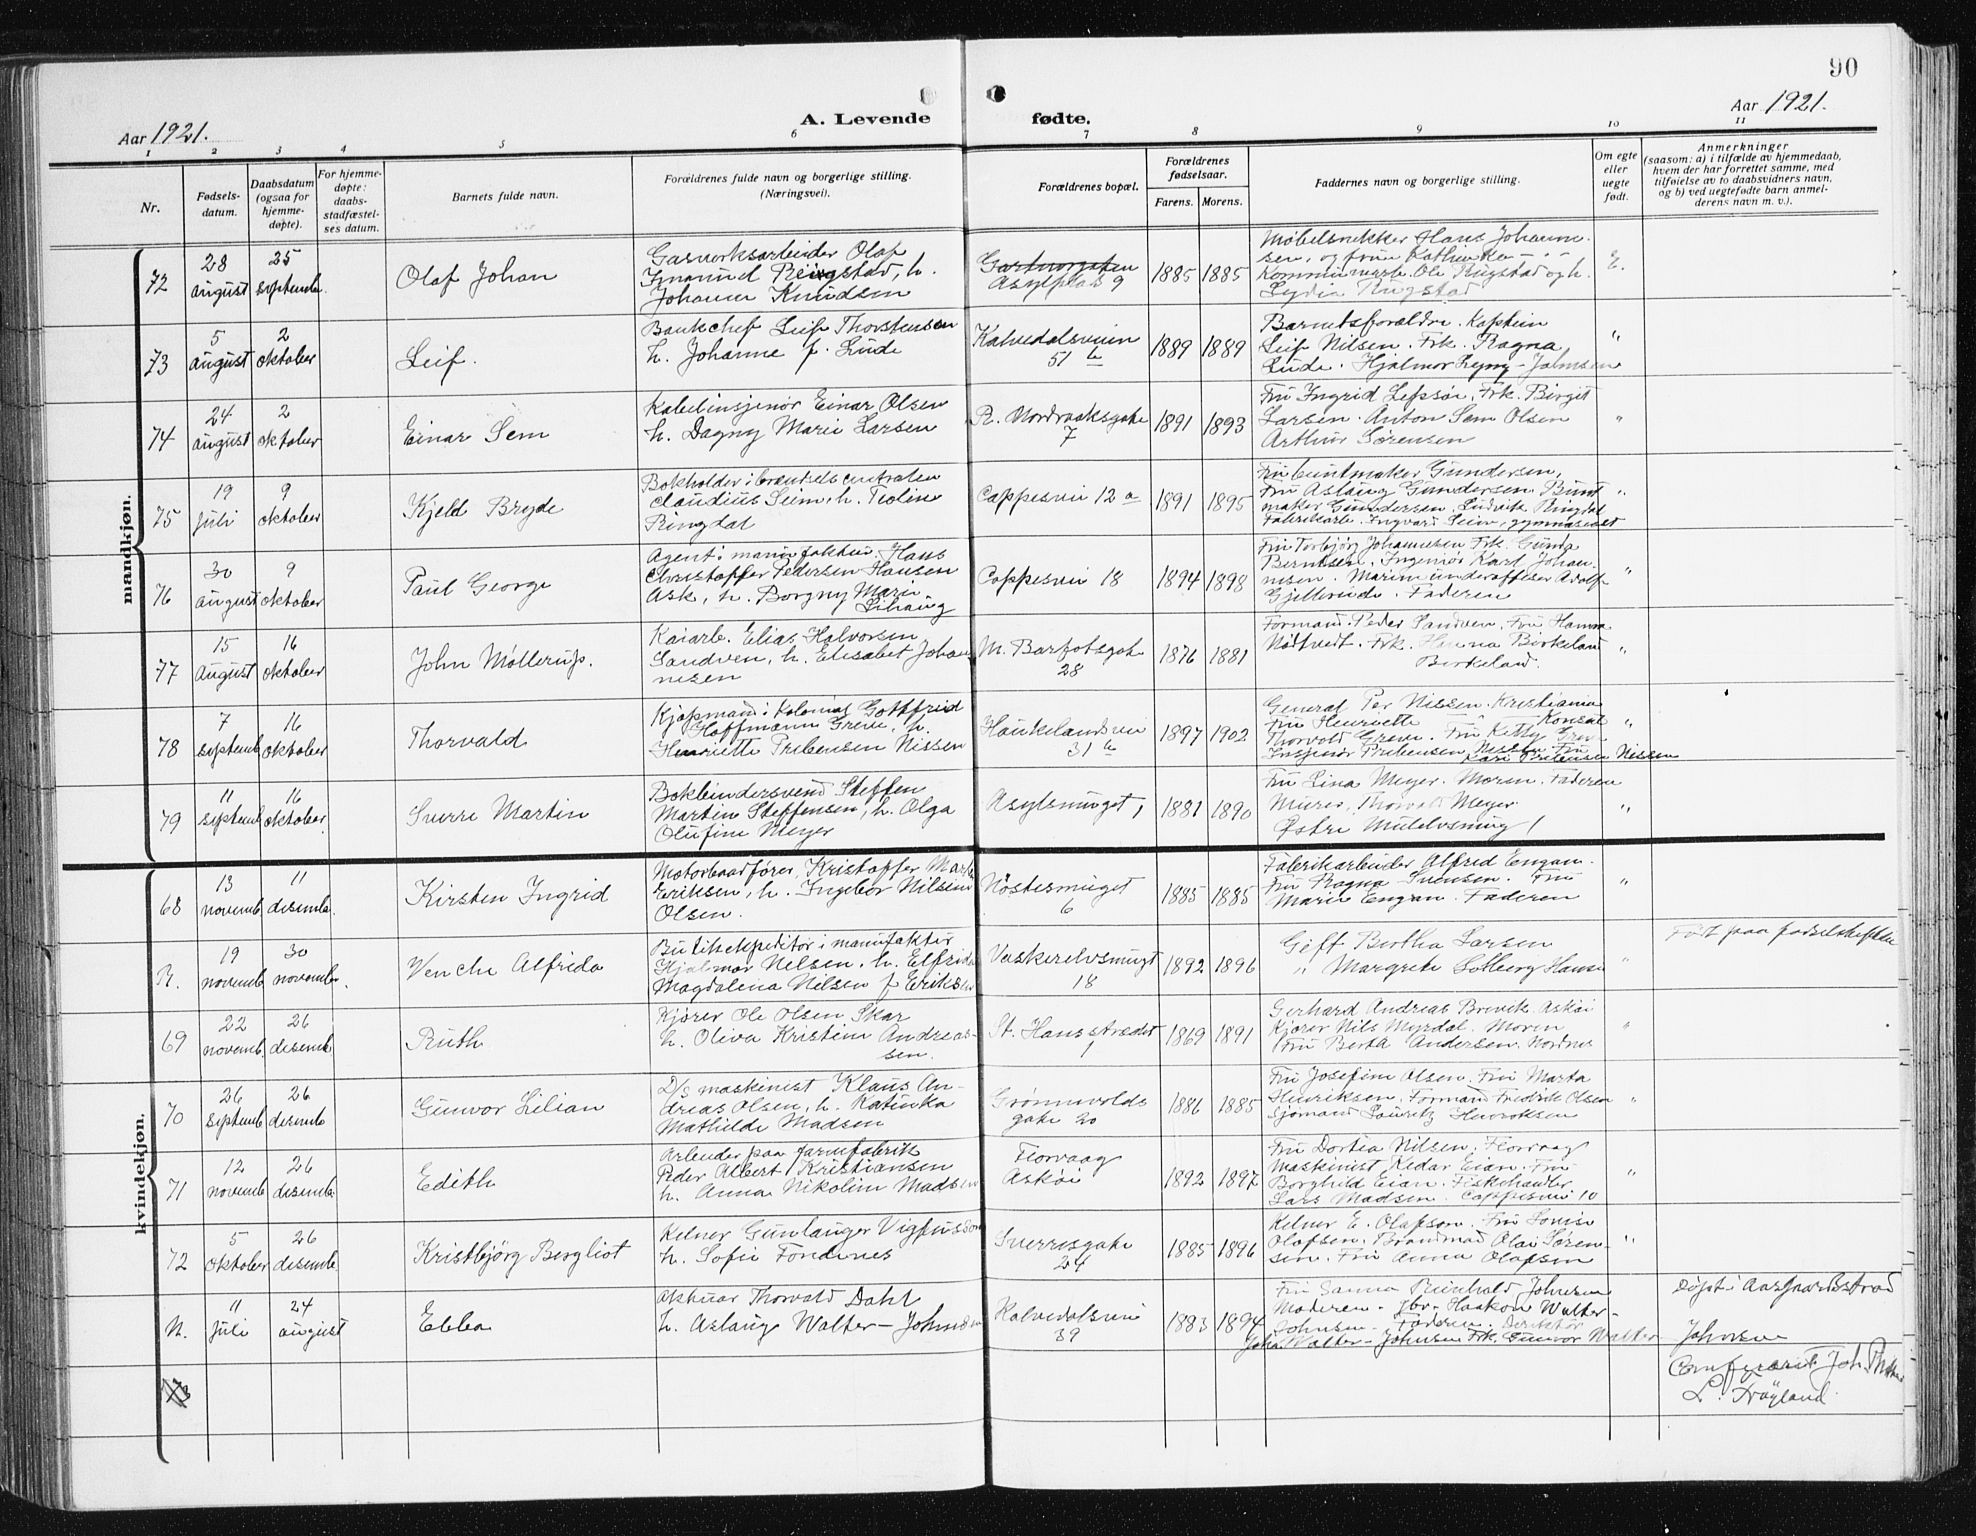 90
Aar 1921.
A. Levende fødte.
Aar 1921.
1 2 3 4 5 6 7 8 9 10 11
Nr.
Fødsels-
datum.
Daabsdatum
(ogsaa for
hjemme-
døpte).
For hjemme-
døpte:
daabs-
stadfæstel-
ses datum.
Barnets fulde navn.
Forældrenes fulde navn og borgerlige stilling.
(Næringsvei).
Forældrenes bopæl.
Forældrenes
fødselsaar.
Farens. Morens.
Faddernes navn og borgerlig stilling.
Om egte
eller
uegte
født.
Anmerkninger
(saasom: a) i tilfælde av hjemmedaab,
hvem der har forrettet samme, med
tilføielse av to daabsvidners navn,
og b) ved uegtefødte barn anmel-
derens navn m. v.).
mandkjøn.
72
28
august
25
septembr
Olaf Johan
Gasverksarbeider Olaf
Ingmund Ringstad, h.
Johanne Knudsen
Gartnergaten
Asylplads 9
1885 1885
Møbelsnekker Hans Johanne-
sen, og frue Kathinka - " -
Kommunearb. Ole Ringstad og h.
Lydia Ringstad
E.
73
5
august
2
oktober
Leif.
Bankchef Leif Thorstensen
h. Johanne f. Lude
Kalvedalsveien
51 b
1889 1889
Barnets forældre. Kaptein
Leif Nilsen. Frk. Ragna
Lude. Hjalmar Lyng-Johnsen
"
74
24
august
2
oktober
Einar Sem
Kabelinsjenør Einar Olsen
h. Dagny Marie Larsen
R. Nordraaksgate
7
1891 1893
Fru Ingrid Lepsøe, Frk. Birgit
Larsen. Anton Sem Olsen
Arthur Sørensen
"
75
19
juli
9
oktober
Kjeld Bryde
Bokholder i brændselscentralen
Claudius Seim, h. Teoline
Ringdal
Cappesvei 12 a
1891 1895
Fru buntmaker Gundersen,
Fru Aslaug Gundersen. Bunt
maker Gundersen. Ludvik Ringdal
Fabrikarb. Ingvard Seim, gymnasiast
"
76
30
august
9
oktober
Paul George
Agent i manufaktur Hans
Christoffer Pedersen Hansen
Ask, h. Borgny Marie
Lihaug
Cappesvei 18
1894 1898
Fru Torbjørg Johannesen Frk. Gunda
Berntsen, Ingeniør Karl Johan-
nesen. Marineunderofficer Adolf
Gjelbrude. Faderen
"
77
15
August
16
oktober
John Møllerup.
Kaiarb. Elias Halvorsen
Sandven, h. Elisabet Johan
nesen
M. Barfotsgate
28
1876 1881
Formand Peder Sandven, Fru Hanna
Nøttvedt. Frk. Hanna Birkeland
Birkeland.
"
78
7
septemb.
16
oktober
Thorvald
Kjøpmand i kolonial Gottfried
Hoffmann Greve, h.
Henriette Prebensen Nissen
Haukelandsvei
31 b
1897 1902
General Per Nissen. Kristiania
Fru Henriette " Konsul
Thorvald Greve. Fru Kitty Greve
Insjenør Prebensen Nissen Fru
Kari Prebensen Nissen
"
79
11
septemb
16
oktober
Sverre Martin
Bokbindersvend Steffen
Martin Steffensen, h. Olga
Olufine Meyer
Asylsmuget 1
1881 1890
Fru Lina Meyer. Moren. Faderen
Murer, Thorvald Meyer
Østre Mulelvsmug 1
"
kvindekjøn.
68
13
novemb.
11
desembr.
Kirsten Ingrid
Motorbaadfører, Kristoffer Martin
Eriksen, h. Ingebor Nilsine
Olsen.
Nøstesmuget
6
1885 1885
Fabrikarbeider Alfred Engan.
Fru Ragna Svensen. Fru
Marie Engan. Faderen
"
R.
19
novemb
30
novembr.
Venche Alfrida
Butikekspeditør i manufaktur
Hjalmar Nilsen, h. Elfrida
Magdalena Nilsen f Eriksen
Vaskerelvsmuget
18
1892 1896
Gift Bertha Larsen
" Margrete Solberg Hansen
"
Født paa fødselstiftelsen
69
22
novemb.
26
desemb
Ruth
Kjører Ole Olsen Skar
h. Oliva Kristine Andreas-
sen.
St. Hansstrædet
1
1869 1891
Gerhard Andreas Brevik. Askøi
Kjører Nils Myrdal. Moren
Fru Berta Andersen. Nordnes
"
70
26
septemb
26
desemb
Gunvor Lilian
D/s maskinist Klaus An-
dreas Olsen, h. Katinka
Mathilde Madsen
Grønnevolds
gate 20
1886 1885
Fru Josefine Olsen. Fru Marta
Henriksen, Formand Fredrik Olsen
Sjømand Lauritz Henriksen
"
71
12
novemb.
26
desemb.
Edith
Arbeider paa farvefabrik
Peder Albert Kristiansen
h. Anna Nikoline Madsen
Florvaag
Askøi
1892 1897
Fru Dortia Nilsen, Florvaag
Maskinist Kedar Eian. Fru
Borghild Eian. Fiskehandler
Lars Madsen. Cappesvei 10
"
72
5
oktober
26
desemb.
Kristbjörg Bergliot
Kelner Gunlauger Vigfusson
h. Sofie Fondenes
Sverresgate
24
1885 1896
Kelner E. Olafson. Fru Lovise
Olafsen. Brandmad Olai Søren-
sen. Fru Anna Olafsen
"
N.
11
juli
24
august
Ebba
Aktuar Thorvald Dahl
h. Aslaug Walter-Johnsen
Kalvedalsvei
39
1883 1894
Fru Sanna Reinhold Johnsen
Moderen - gbr. Haakon Walter-
Johnsen - Faderen. Direktør
Joh. Walter-Johnsen Frk. Gunvor Walter-
Johnsen
Døpt i Aasgaardstrand
Conf
L. Frøyland.